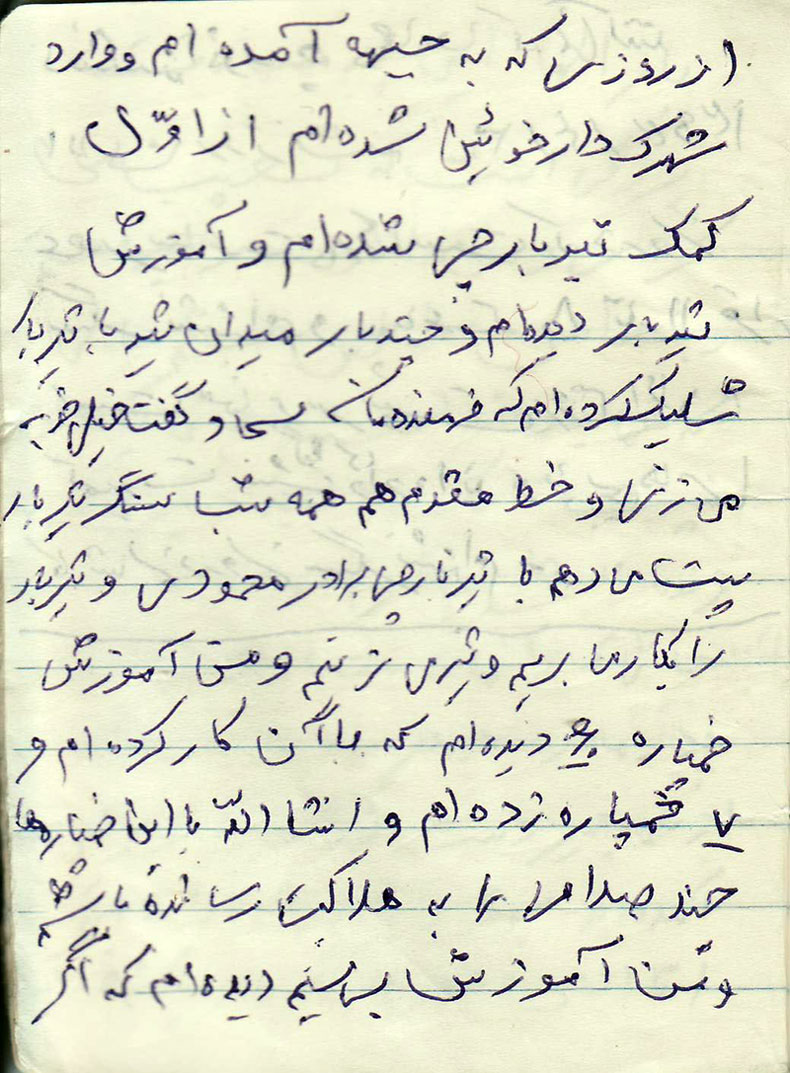 از روزی که به جبهه آمده ام و وارد
شهرک دارخوئین شده ام از اوّل
کمک تیربارچی شده ام و آموزش
تیربار دیده ام و چند بار میدان تیر با تیربار
شلیک کرده ام که فرمنده مان و گفت خیلی خوب
می زنی و خط مقدم هم همه شب سنگر تیربار
پست می دهم با تیربارچی برادر محمودی و تیربار
را بکار می بریم و تیر می زنیم و من آموزش
خمپاره ۶۰ دیده ام که با آن کار کرده ام و
۷ خمپاره زده ام و انشا الله با این خمپاره ها
چند صدامی را به هلاکت رسانده باشم
و من آموزش بی سیم دیده ام که اگر